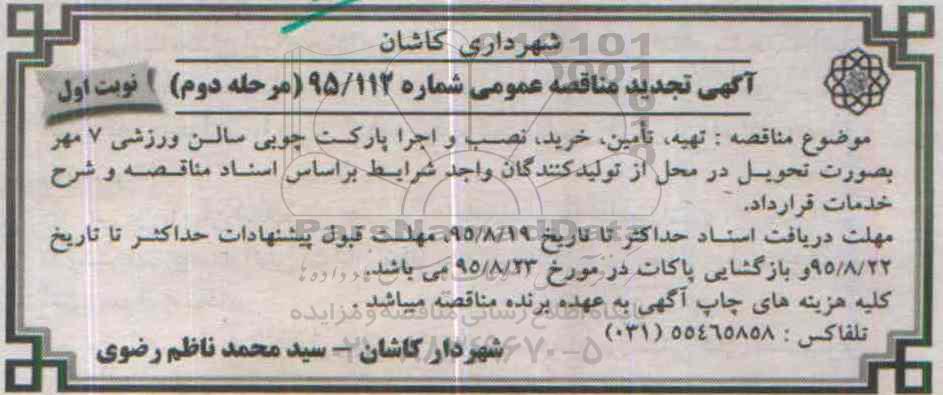 شهرداری کاشان
آگهی تجدید مناقصه عمومی شماره ۹۵/۱۱۲ (مرحله دوم)
نوبت اول
موضوع مناقصه : تهیه، تأمین، خرید، نصب و اجرا پارکت چوبی سالن ورزشی ۷ مهر
بصورت تحویل در محل از تولیدکنندگان واجد شرایط براساس اسناد مناقصه و شرح
خدمات قرارداد.
مهلت دریافت اسناد حداکثر تا تاریخ ۹۵/۸/۱۹، مهلت قبول پیشنهادات حداکثر تا تاریخ
۹۵/۸/۲۲و بازگشایی پاکات در مورخ ۹۵/۸/۲۳ می باشد.
کلیه هزینه های چاپ آگهی به عهده برنده مناقصه میباشد .
تلفاکس : ۵۵۴۶۵۸۵۸ (۰۳۱)
شهردار کاشان – سید محمد ناظم رضوی
ParsNamadData
پایگاه اطلاع رسانی مناقصه و مزایده